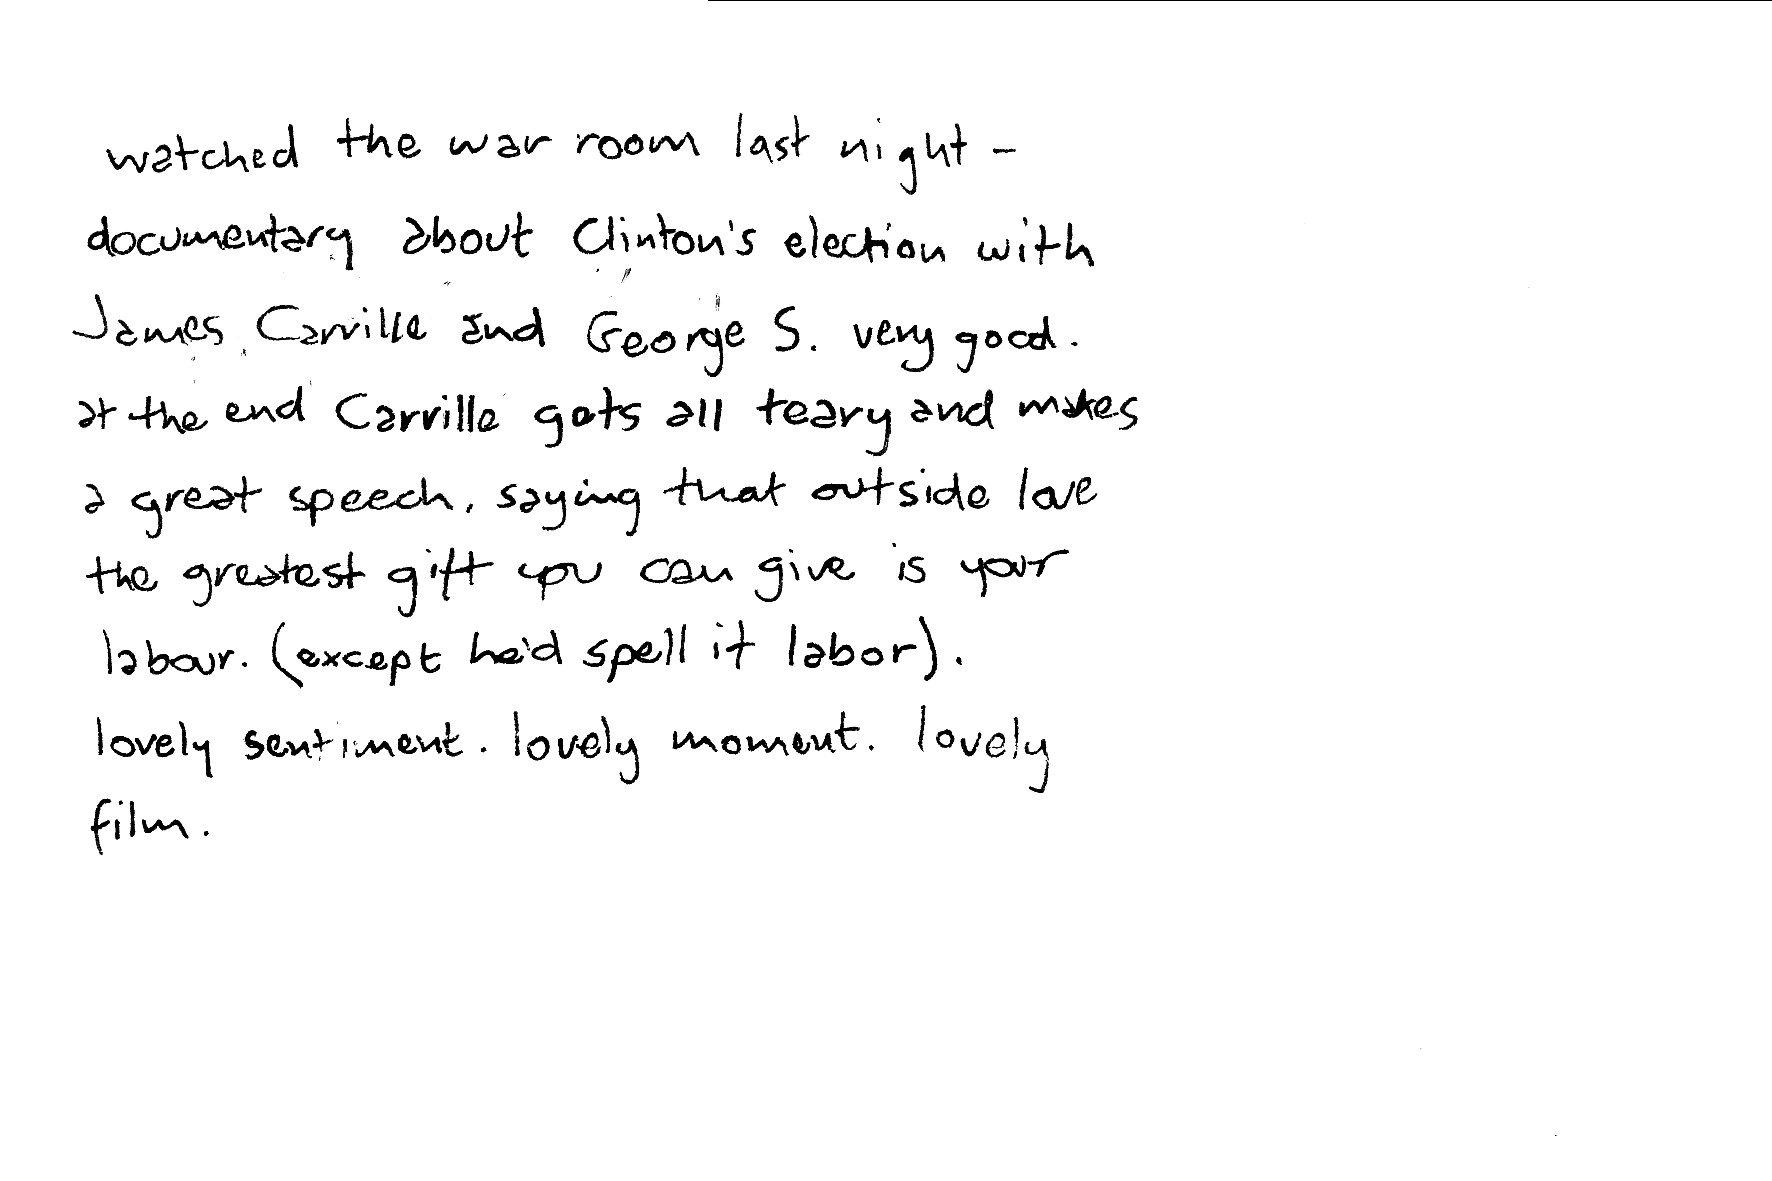 watched the war room last night -
documentary about Clinton's election with
James Carville and George S. very good.
at the end Carville gets all teary and makes
a great speech, saying that outside love
the greatest gift you can give is your
labour. (except he'd spell it labor).
lovely sentiment. lovely moment. lovely
film.